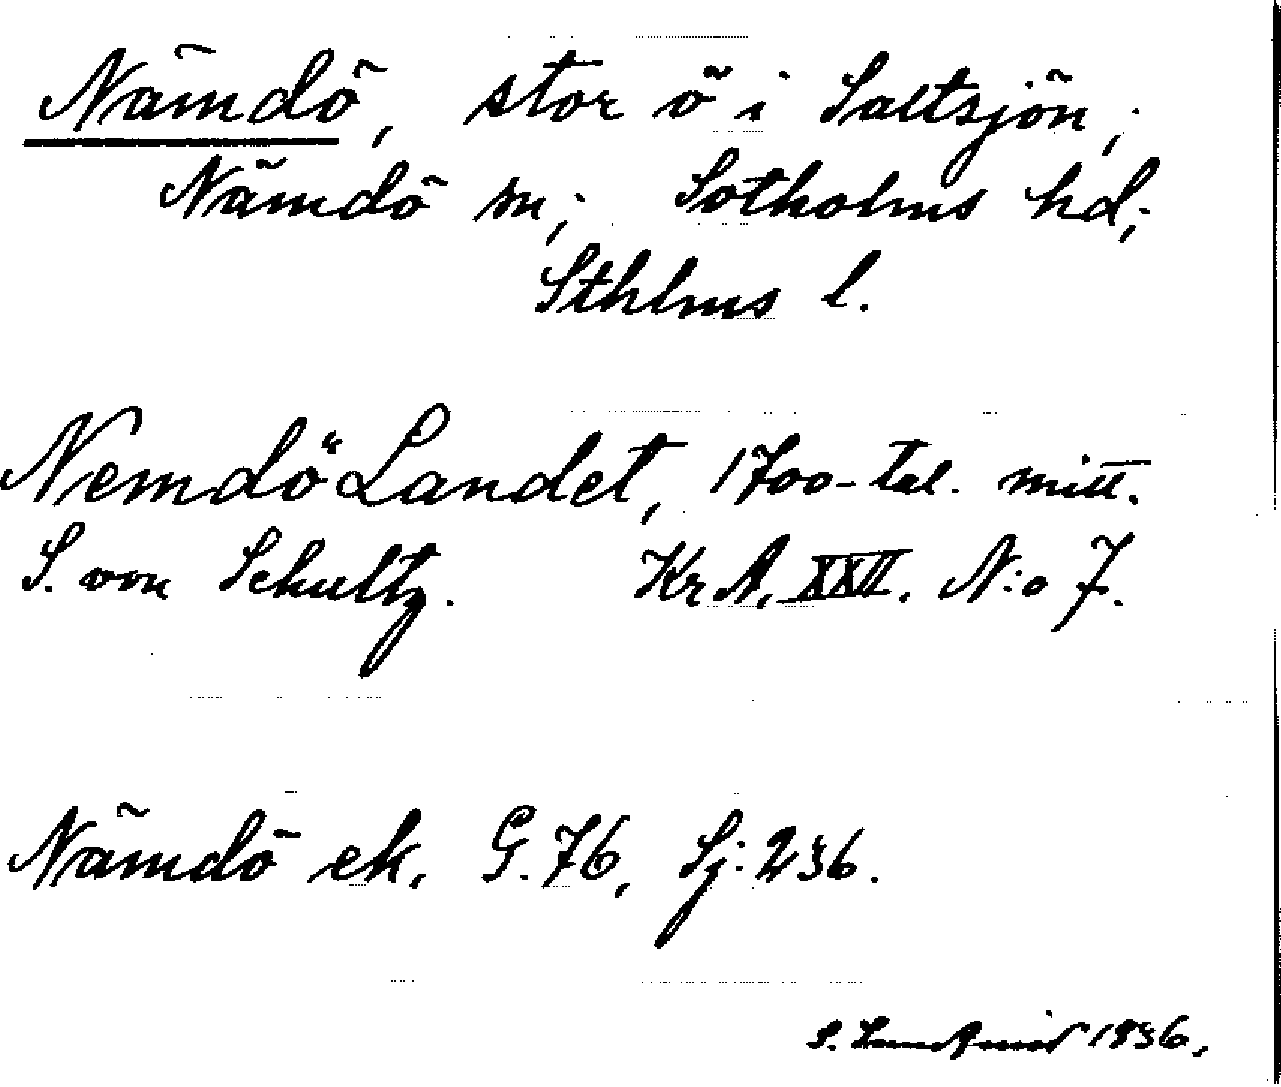 Nämdö, stor ö i Saltsjön;
Nämdö sn; Sotholms hd;
Sthlms l.
Nemdö Landet, 1700-tal. mitt.
S. von Schultz. KrA. XXII. N:o 7.
Nämdö ek. G. 76, Sj: 236.
S. 1936.